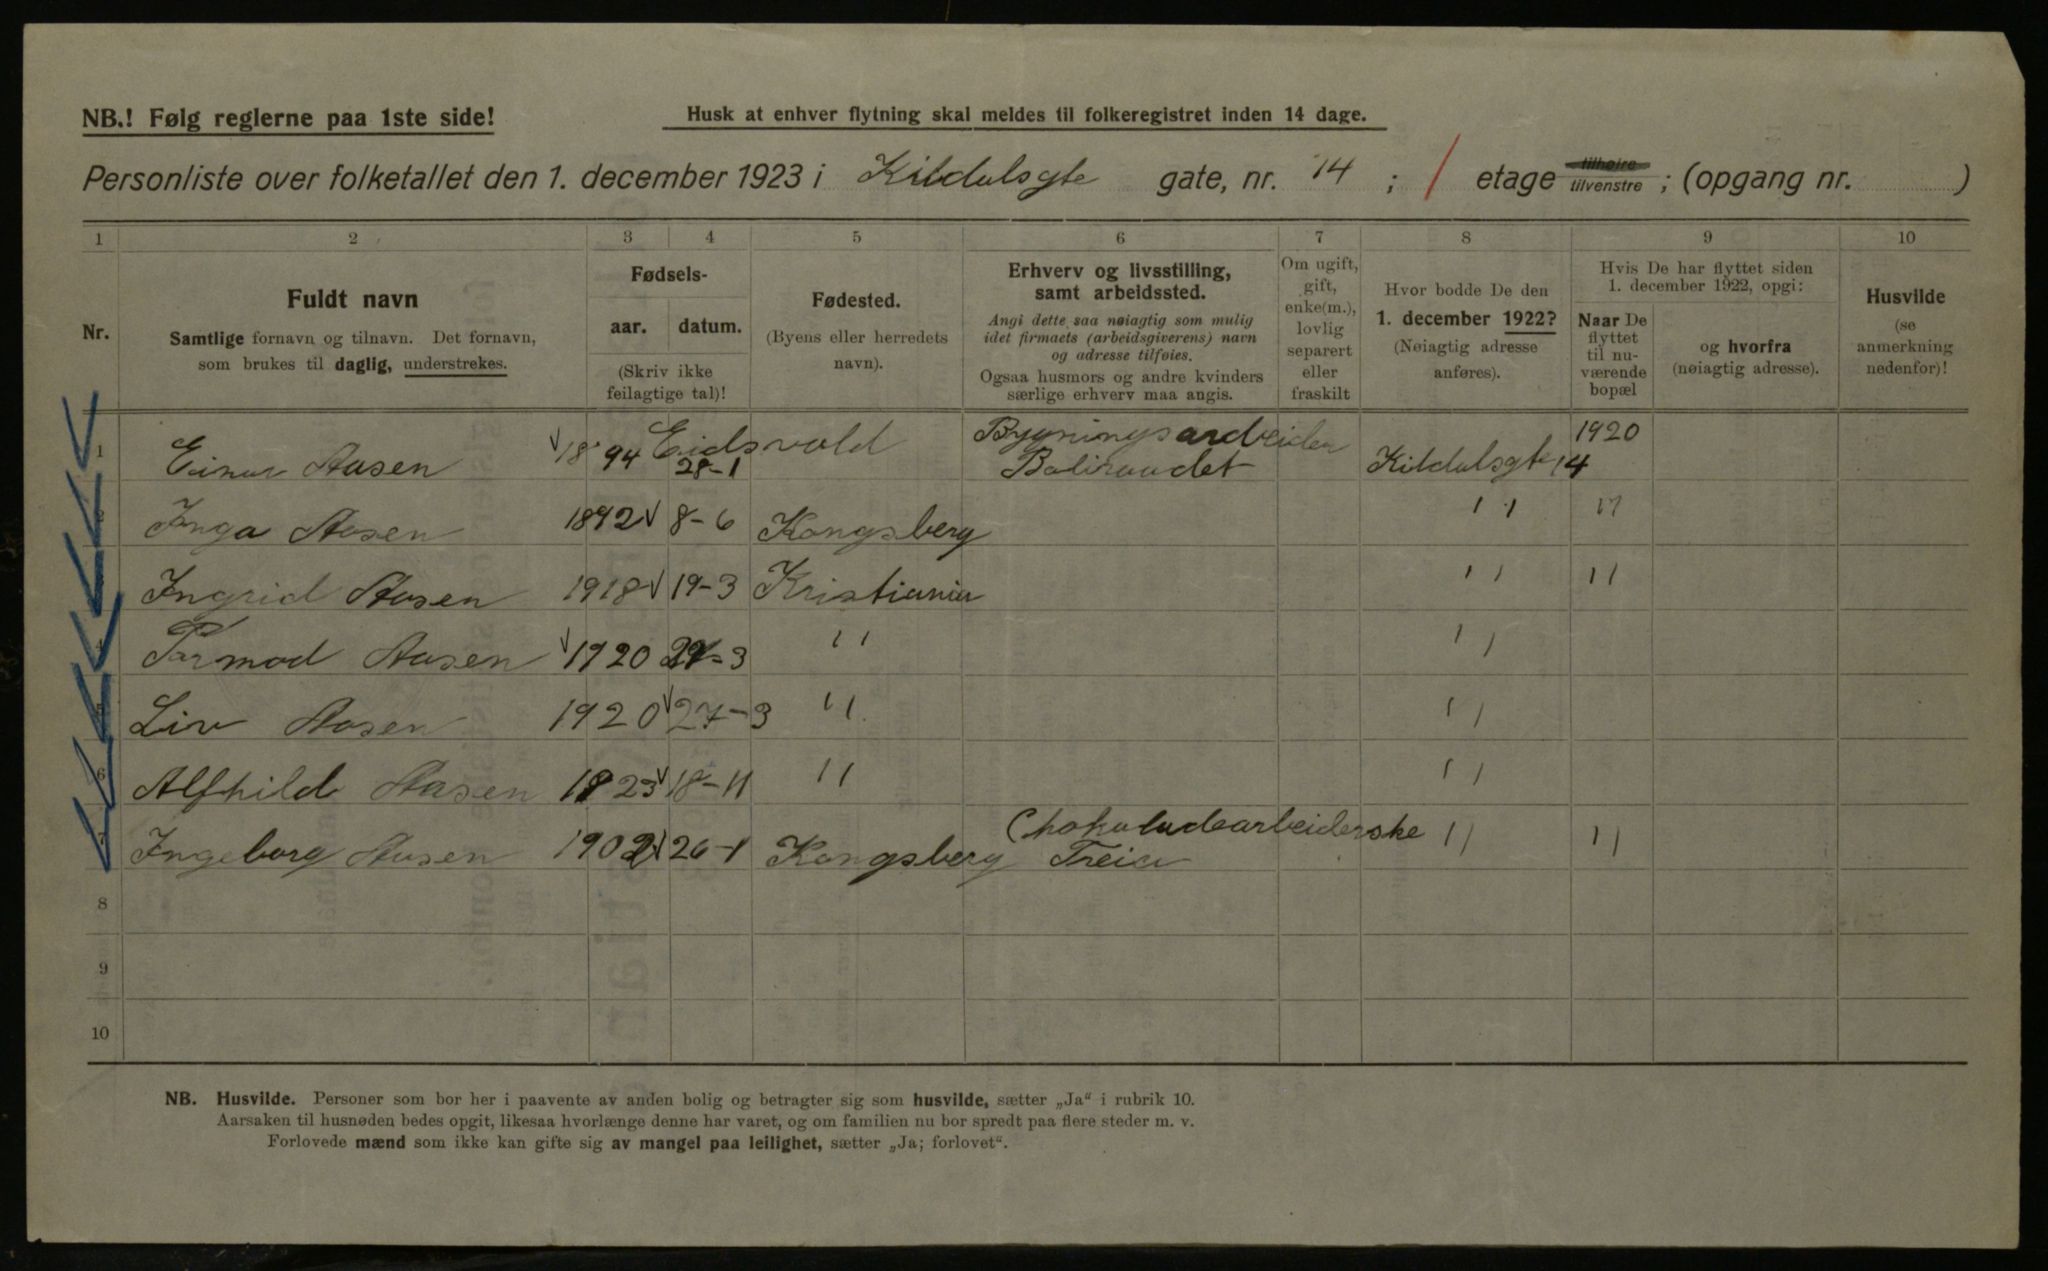 NB.! Følg reglerne paa 1ste side!
Husk at enhver flytning skal meldes til folkeregistret inden 14 dage.
Personliste over folketallet den 1. december 1923 i Kildalsgte gate, nr. 14 ; 1 etage tilhøire tilvenstre ; (opgang nr. )
1 2 3 4 5 6 7 8 9 10
Nr.
Fuldt navn
Samtlige fornavn og tilnavn. Det fornavn,
som brukes til daglig, understrekes.
Fødsels-
aar. datum.
(Skriv ikke
feilagtige tal)!
Fødested.
(Byens eller herredets
navn).
Erhverv og livsstilling,
samt arbeidssted.
Angi dette saa nøiagtig som mulig
idet firmaets (arbeidsgiverens) navn
og adresse tilføies.
Ogsaa husmors og andre kvinders
særlige erhverv maa angis.
Om ugift,
gift,
enke(m.),
lovlig
separert
eller
fraskilt
Hvor bodde De den
1. december 1922?
(Nøiagtig adresse
anføres).
Hvis De har flyttet siden
1. december 1922, opgi:
Naar De
flyttet
til nu-
værende
bopæl
og hvorfra
(nøiagtig adresse).
Husvilde
(se
anmerkning
nedenfor)!
1 Einar Aasen 1894 28-1 Eidsvold Bygningsarbeider Kildalsgte 14 1920
2 Inga Aasen 1892 8-6 Kongsberg " "
3 Ingrid Aasen 1918 19-3 Kristiania " "
4 Tormod Aasen 1920 27-3 " "
5 Liv Aasen 1920 27-3 " "
6 Alfhild Aasen 1923 18-11 " "
7 Ingeborg Aasen 1902 26-1 Kongsberg Chokoladearbeiderske Freia " "
8
9
10
NB. Husvilde. Personer som bor her i paavente av anden bolig og betragter sig som husvilde, sætter „Ja“ i rubrik 10.
Aarsaken til husnøden bedes opgit, likesaa hvorlænge denne har varet, og om familien nu bor spredt paa flere steder m. v.
Forlovede mænd som ikke kan gifte sig av mangel paa leilighet, sætter „Ja; forlovet“.